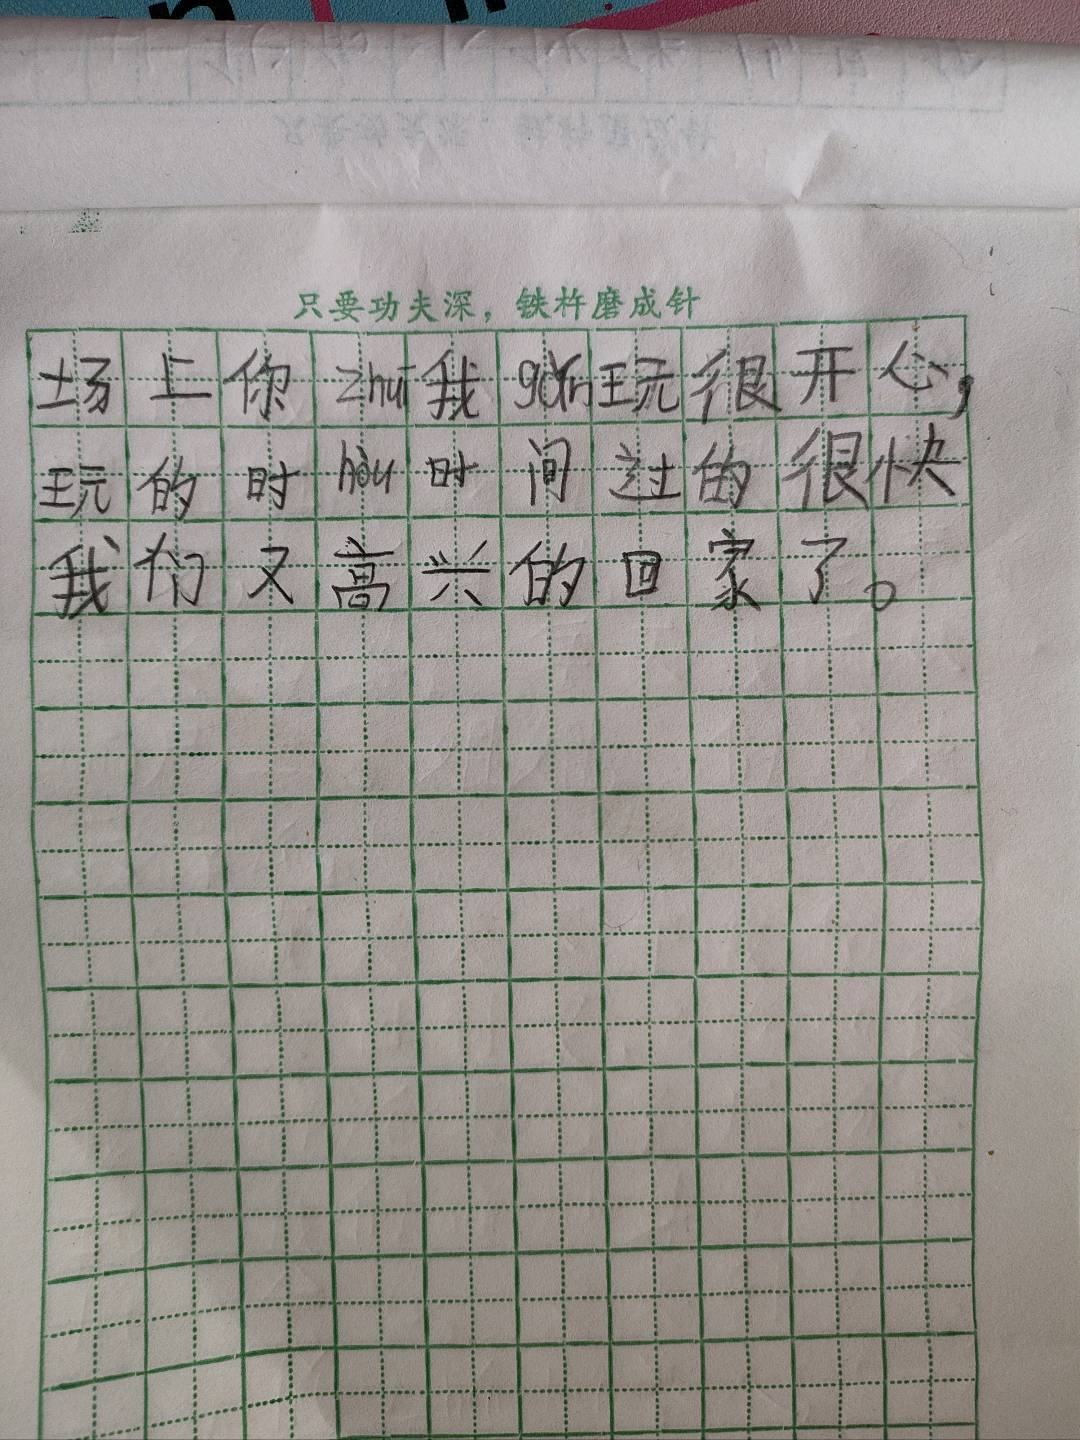 只要功夫深，铁杵磨成针
场上你zhuī我gǎn玩很开心，
玩的时hòu时间过的很快
我们又高兴的回家了。